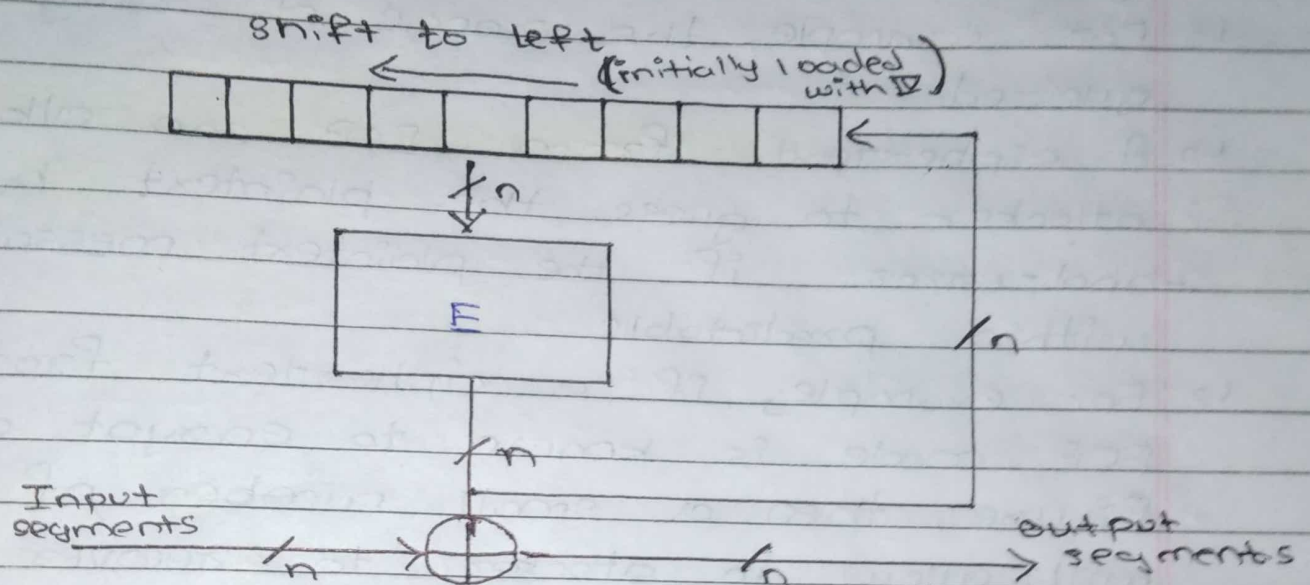 shift to left
(initially loaded
with IV)
n
E
n
n
Input
segments
n
n
output
segments